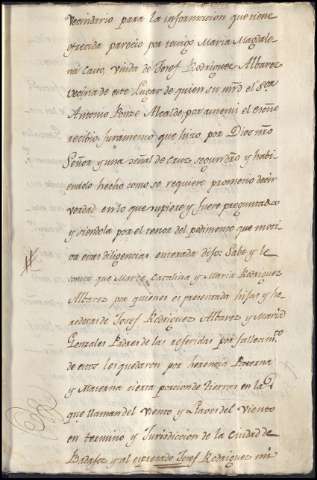 Vecindario para la informacion que tiene
ofrecida parecio por testigo Maria Magdale
na Cano, viuda de Josef Rodriguez Albarez
vecina de este Lugar de quien su mrd el Sor
Antonio Ponze Alcalde por ante mi el escno
recibio Juramento que hizo por Dios nro
Señor y una señal de Cruz segun dro y habi
endolo hecho como se requiere prometio decir
verdad en lo que supiere y fuere preguntada
y siendola por el tenor del pedimento que moti
ca estas diligencias enterada dijo: Sabe y le
consta que Catalina y Maria Rodriguez
Albarez por quienes es presentada hijas y he
rederas de Josef Rodriguez Albarez y Maria
Gonzales Padres de las referidas por fallecimto
de estos les quedaron por herencia Paterna
y Materna cierta porcion de tierras en la
que llaman del Viento y del Viento
en termino y Jurisdiccion de la Ciudad de
Badajoz y al expresado Josef Rodriguez